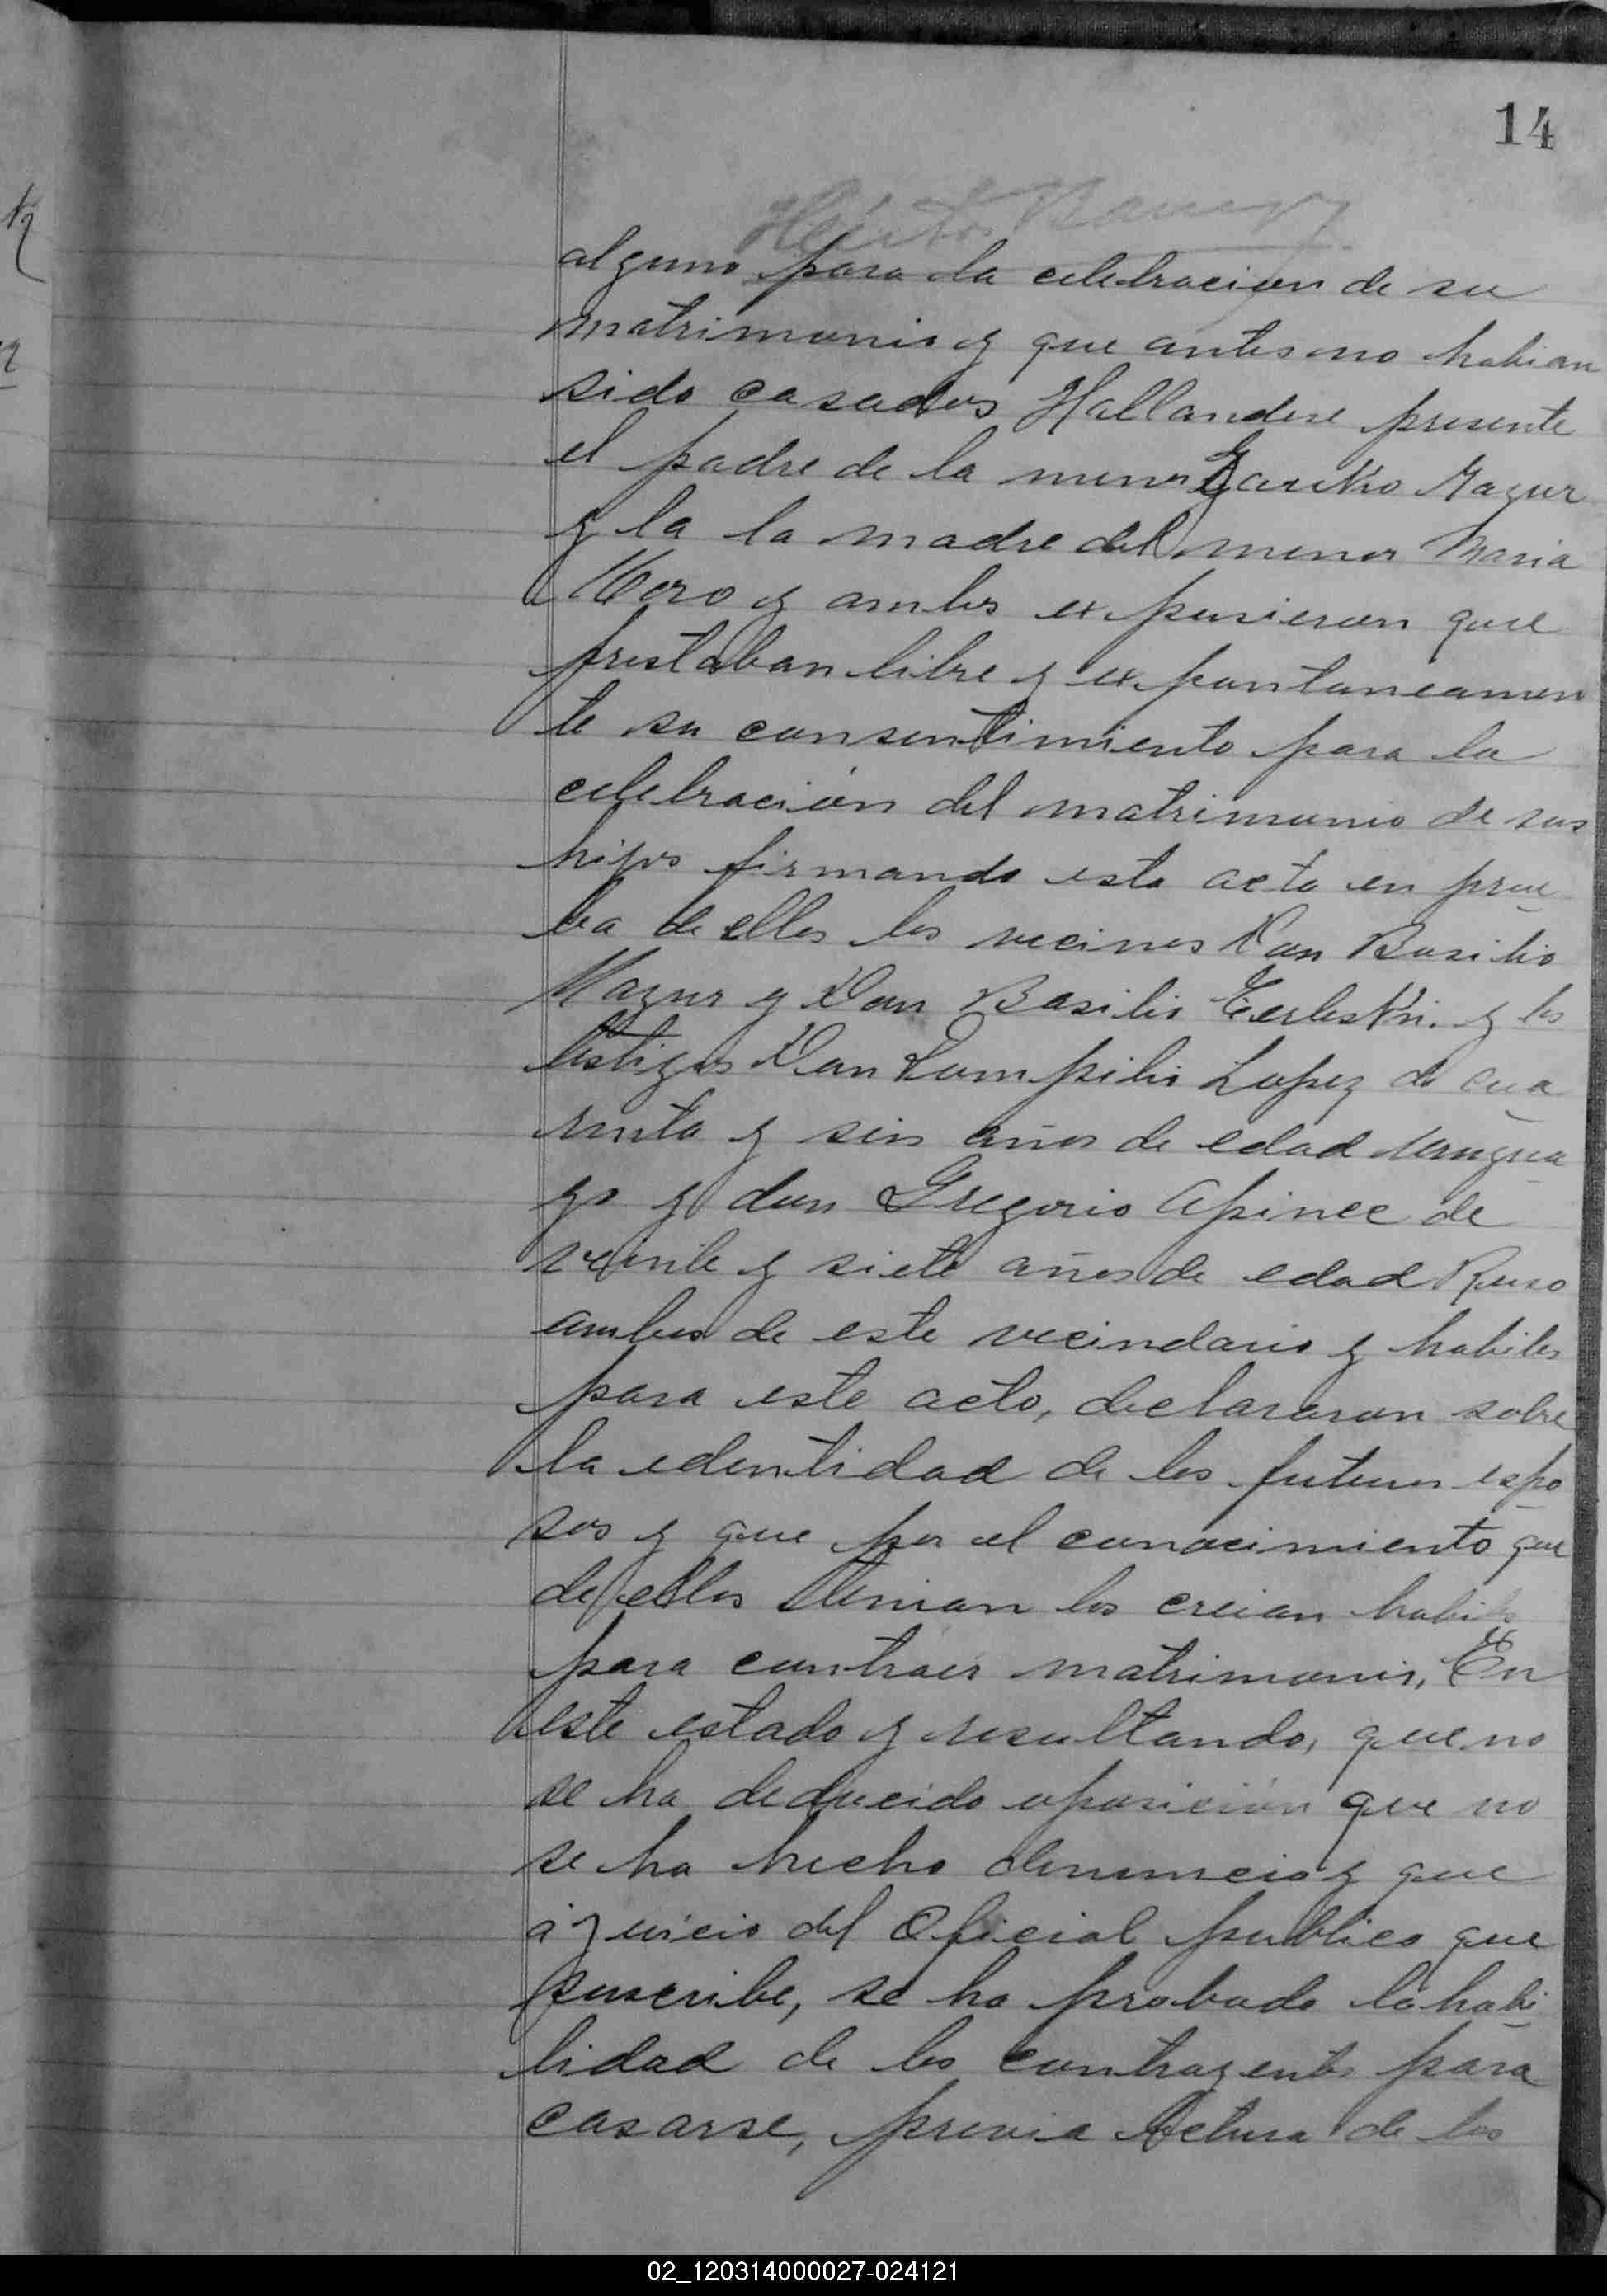 14
alguno para la celebracion de su
matrimonio y que antes no habian
sido casados Hallandose presente
el padre de la menor Mazur
y la la madre del menor Maria
Moro y ambos expusieron que
prestaban libre y expontaneamen
te su consentimiento para la
celebración del matrimonio de sus
hijos firmando esta acta en prue
ba de ellos los vecinos Don Basilio
Mazur y Don Basilio y los
testigos Don Pompilio Lopez de cua
renta y seis años de edad Urugua
yo y don Gregorio Apinee de
veinte y siete años de edad Ruso
ambos de este vecindario y habiles
para este acto, declararon sobre
la edentidad de los futuros espo
sos y que por el conocimiento que
de ellos tenian los creian habiles
para contraer matrimonio, En
este estado y resultando, que no
se ha deducido oposición que no
se ha hecho denuncia y que
á juicio del Oficial publico que
suscribe, se ha probado la habi
lidad de los contrayentes para
casarse, previa lectura de los
02_120314000027-024121